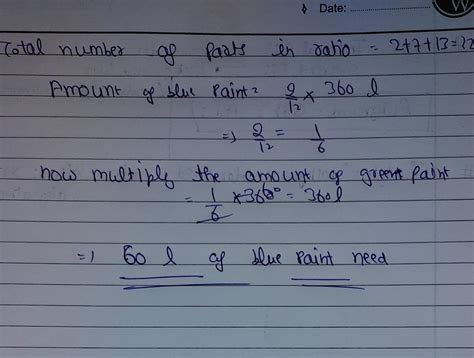 Date:
Total number of parts in ratio = 2+7+13=22
Amount of blue Paint = 2/12 × 360 l
=> 2/12 = 1/6
now multiply the amount of green Paint
= 1/6 × 360 = 360 l
=) 60 l of blue Paint need